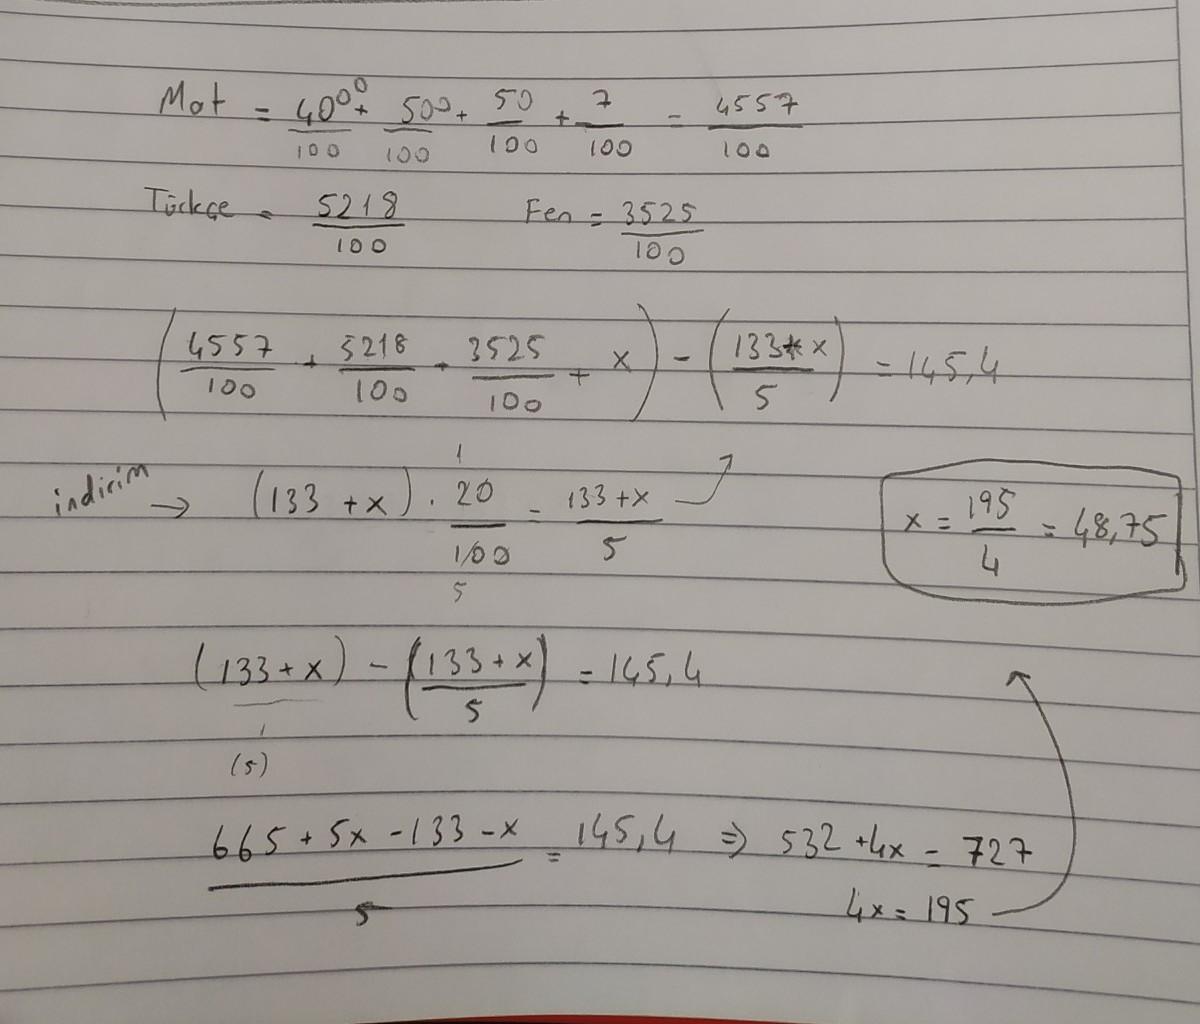 Mat = 4000/100 + 500/100 + 50/100 + 7/100 = 4557/100
Türkçe = 5218/100 Fen = 3525/100
(4557/100 + 5218/100 + 3525/100 + x) - (133+x/5) = 145,4
indirim → (133 + x) . 20/100 = 133+x/5
1
5
x = 195/4 = 48,75
(133 + x)/1 - (133 + x/5) = 145,4
(5)
665 + 5x - 133 - x/5 = 145,4 ⇒ 532 + 4x = 727
4x = 195